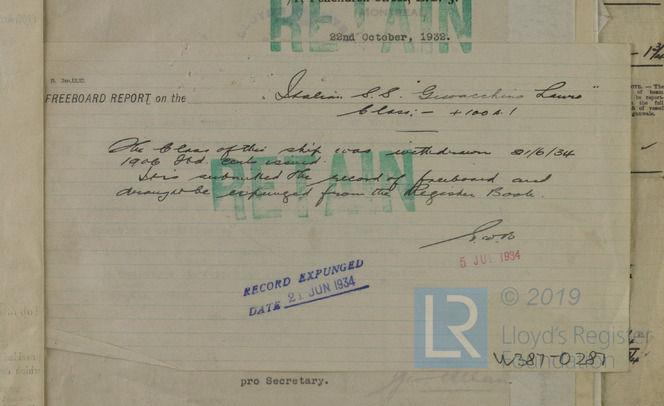 RETAIN
22nd October, 1932.
FREEBOARD REPORT on the Italian S.S. "Giovacchino Lauro"
Class:- +100A.1
The Class of this ship was withdrawn 21/6/34
1906 Fbd. Certs issued.
It is submitted the record of freeboard and
draught be expunged from the Register Book.
RETAIN
5 JUL 1934
RECORD EXPUNGED
DATE 21 JUN 1934
LR
© 2019
Lloyd's Register
Foundation
W387-0287
pro Secretary.